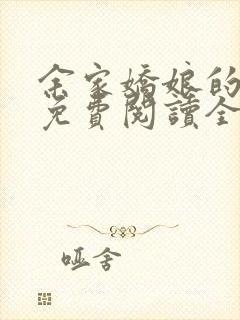 余家嬌娘的
免費閱讀全
哑舍